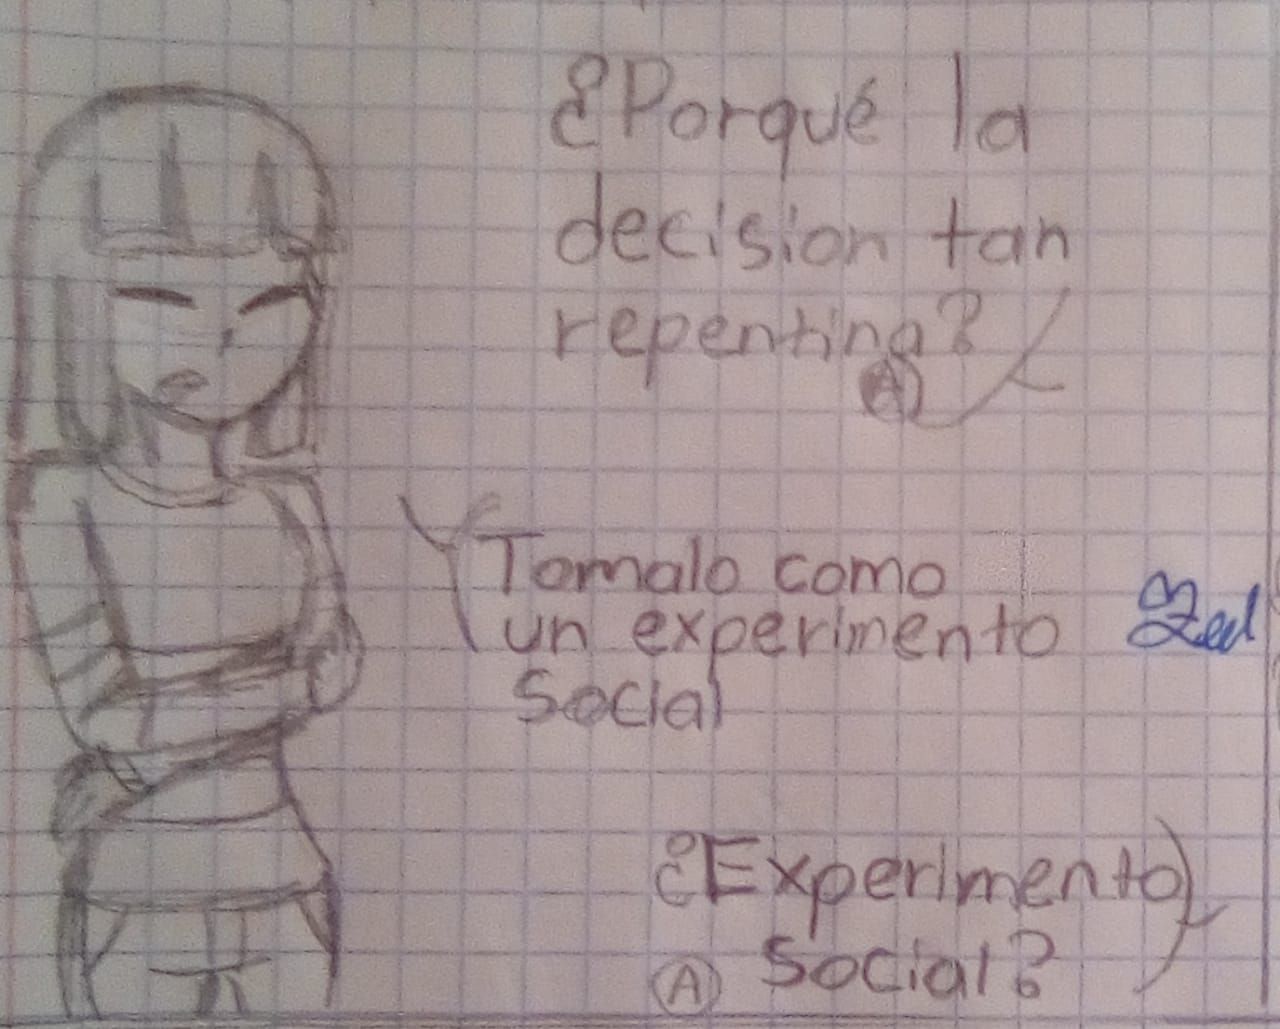 ¿Porqué la
decision tan
repentina?
A
Tomalo como
un experimento
Social
Zed
¿Experimento
A Social?